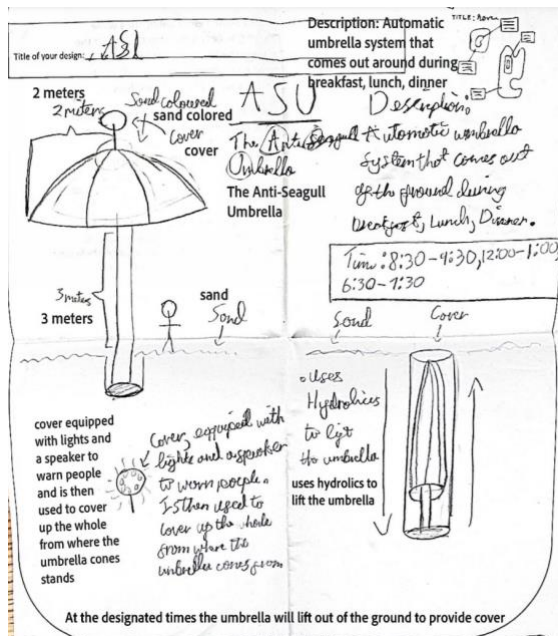 Title of your design: ASU
Description: Automatic
umbrella system that
comes out around during
breakfast, lunch, dinner
TITLE:
2 meters
2 meters
Sand coloured
sand colored
Cover
cover
ASU
The Anti-Seagull
Umbrella
The Anti-Seagull
Umbrella
Description:
Automatic umbrella
system that comes out
of the ground during
Breakfast, Lunch, Dinner.
Time: 8:30-9:30, 12:00-1:00,
6:30-7:30
3 meters
3 meters
sand
Sand
Sand
Cover
cover equipped
with lights and
a speaker to
warn people
and is then
used to cover
up the whole
from where the
umbrella cones
stands
Cover, equipped with
lights and a speaker
to warn people.
Is then used to
cover up the hole
from where the
umbrella comes from
• Uses
Hydrolics
to lift
the umbrella
uses hydrolics to
lift the umbrella
At the designated times the umbrella will lift out of the ground to provide cover